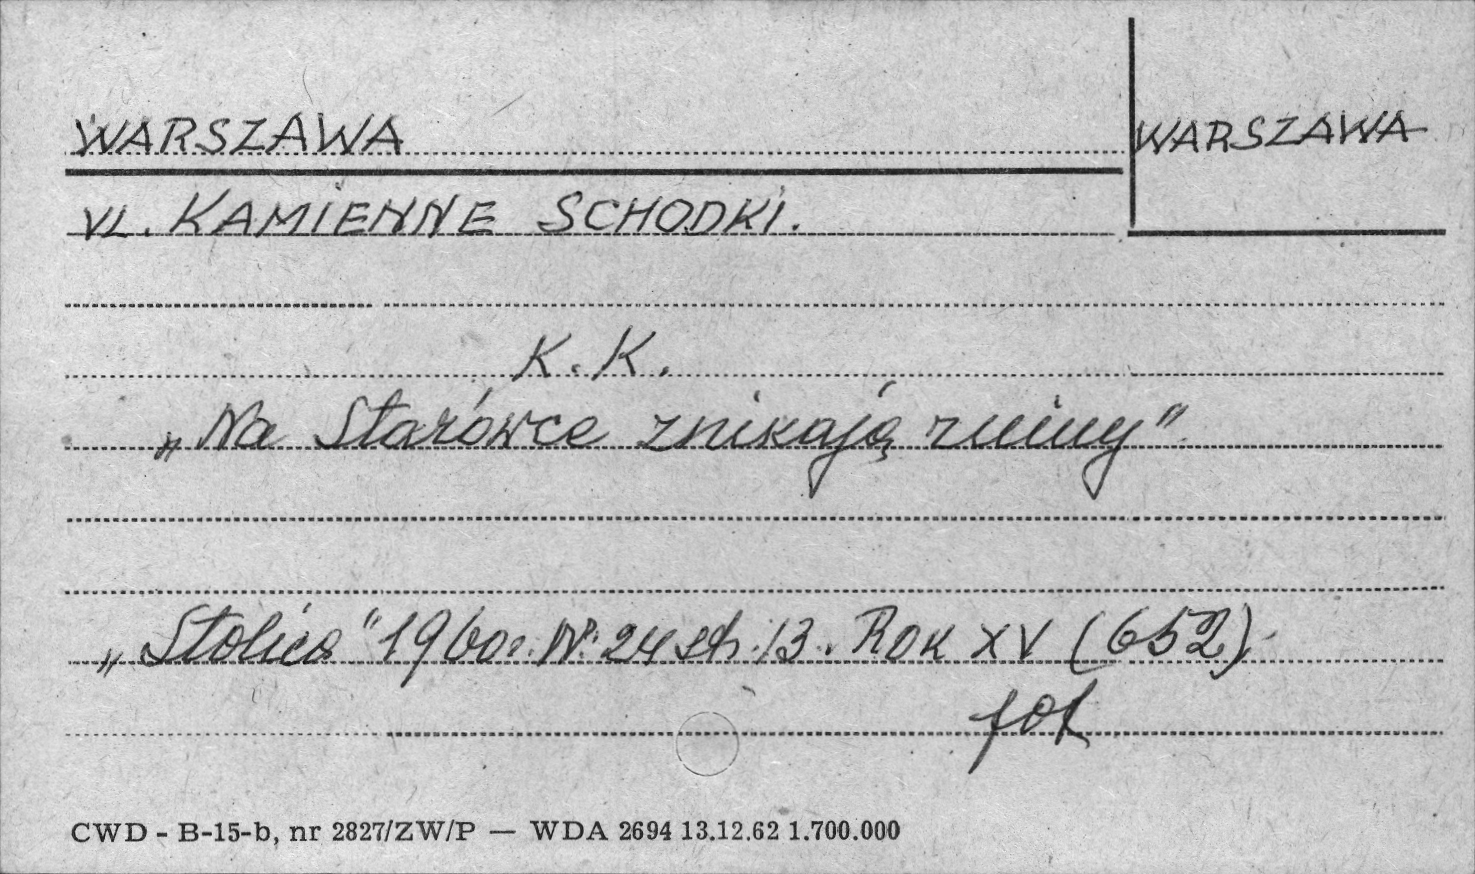 WARSZAWA
WARSZAWA
UL. KAMIENNE SCHODKI.
K. K.
„Na Starówce znikają ruiny"
„Stolica" 1960r. Nr. 24 str. 13. Rok XV (652)
fot
CWD - B-15-b, nr 2827/ZW/P — WDA 2694 13.12.62 1.700.000